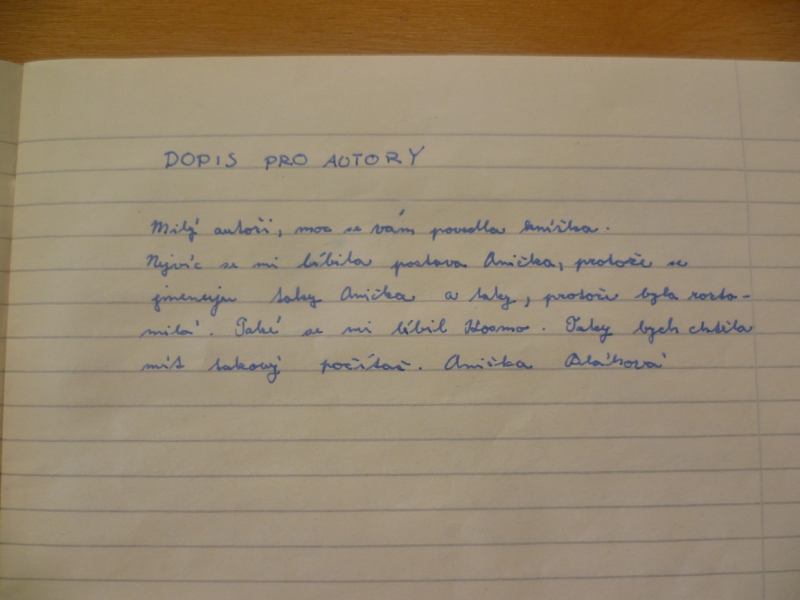 DOPIS PRO AUTORY
Milý autoři, moc se vám povedla knížka.
Nejvíc se mi líbila postava Anička, protože se
jmenuju taky Anička a taky, protože byla rozto-
milá. Také se mi líbil Kosmo. Taky bych chtěla
mít takový počítač. Anička Bláhová